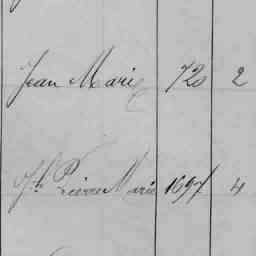 Jean Marie 720 2
Jh Pierre Marie 1697 4